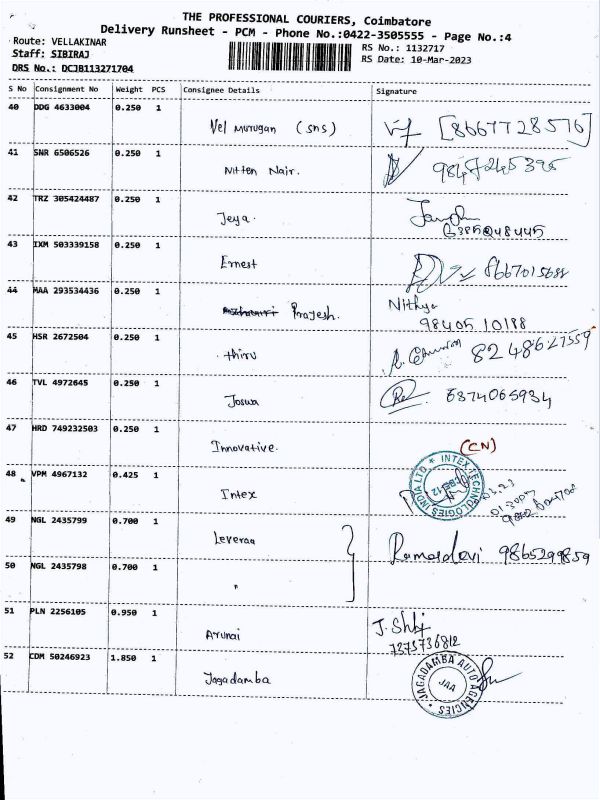 THE PROFESSIONAL COURIERS, Coimbatore
Delivery Runsheet - PCM - Phone No.:0422-3505555 - Page No.:4
Route: VELLAKINAR
Staff: SIBIRAJ
DRS No.: DCJB113271704
RS No.: 1132717
RS Date: 10-Mar-2023
S No Consignment No Weight PCS Consignee Details Signature
40 DDG 4633004 0.250 1
Vel Murugan (sns) [8667728576]
41 SNR 6506526 0.250 1
Nitten Nair.
42 TRZ 305424487 0.250 1
Jeya.
43 IXM 503339158 0.250 1
Ernest
44 MAA 293534436 0.250 1
Prajesh. Nithya
98405 10188
45 HSR 2672504 0.250 1
thiru 8248627559
46 TVL 4972645 0.250 1
Joswa 6374065934
47 HRD 749232503 0.250 1
Innovative. (CN)
48 VPM 4967132 0.425 1
Intex
INTEX TECHNOLOGIES INDIA LTD
49 NGL 2435799 0.700 1
Leveraa Ramadevi 9865299859
50 NGL 2435798 0.700 1
"
51 PLN 2256105 0.950 1
Arunai
7373736812
52 CDM 50246923 1.850 1
Jagadamba
JAGADAMBA AUTO AGENCIES
JAA